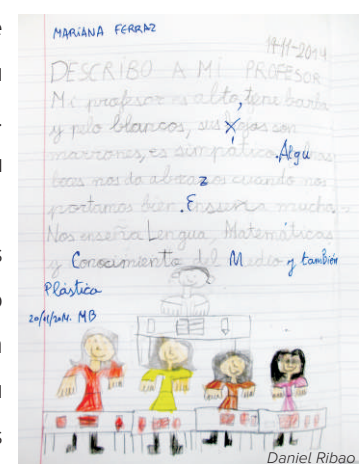 MARIANA FERRAZ
19-11-2014
DESCRIBO A Mi PROFESOR
Mi profesor es alto, tiene barba
y pelo blancos, sus ojos son
marrones, es simpático. Algu
beces nos da abrazos cuando nos
portamos bien. Enseña mucho.
Nos enseña Lengua, Matemáticas
y Conocimiento del Medio y también
Plástica
20/11/2014. MB
Daniel Ribao